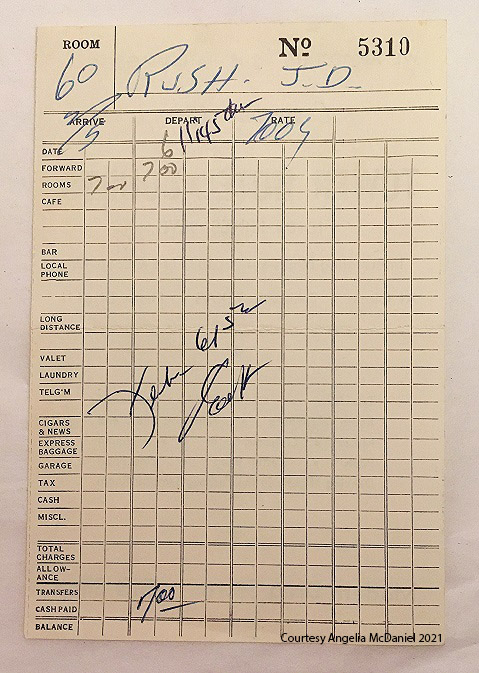 ROOM Nº 5310
60 RUSH. J.D.
ARRIVE DEPART RATE
7/5 11:45 700
DATE 6
FORWARD 7 00
ROOMS 7 00
CAFE
BAR
LOCAL
PHONE
LONG
DISTANCE
VALET
LAUNDRY
TELG'M
CIGARS
& NEWS
EXPRESS
BAGGAGE
GARAGE
TAX
CASH
MISCL.
TOTAL
CHARGES
ALLOW-
ANCE
TRANSFERS
CASH PAID 7/00
BALANCE
Courtesy Angelia McDaniel 2021